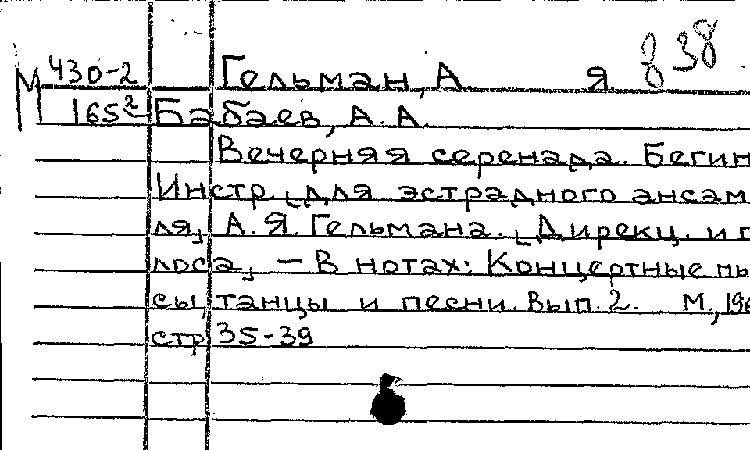 М 430-2 Гельман, А я 838
165² Бабаев, А. А.
Вечерняя серенада. Бегин
Инстр. [для эстрадного ансам
ля] А. Я. Гельмана. [Дирекц. и г
лоса] — В нотах: Концертные пь
сы, танцы и песни. Вып. 2. М., 196
стр 35-39